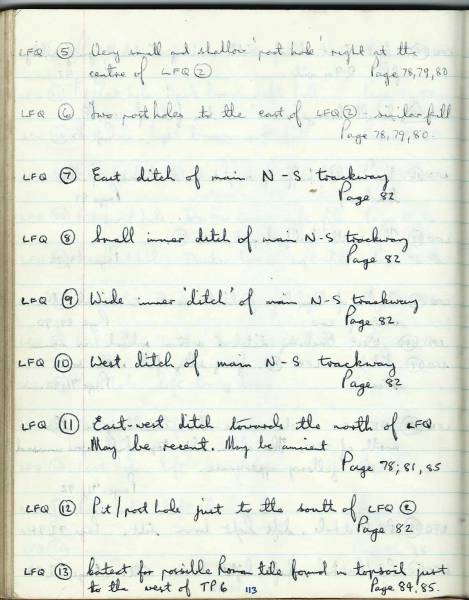 LFQ ⑤ Very small and shallow 'post hole' right at the
centre of LFQ ② Page 78,79,80
LFQ ⑥ Two post holes to the east of LFQ ② - similar fill
Page 78,79,80.
LFQ ⑦ East ditch of main N-S trackway
Page 82
LFQ ⑧ Small inner ditch of main N-S trackway
Page 82
LFQ ⑨ Wide inner 'ditch' of main N-S trackway
Page 82
LFQ ⑩ West ditch of main N-S trackway
Page 82
LFQ ⑪ East-west ditch towards the north of LFQ.
May be recent. May be ancient
Page 78; 81, 85
LFQ ⑫ Pit/post hole just to the south of LFQ ②
Page 82
LFQ ⑬ Context for possible Roman tile found in topsoil just
to the west of TP6 Page 84, 85.
113